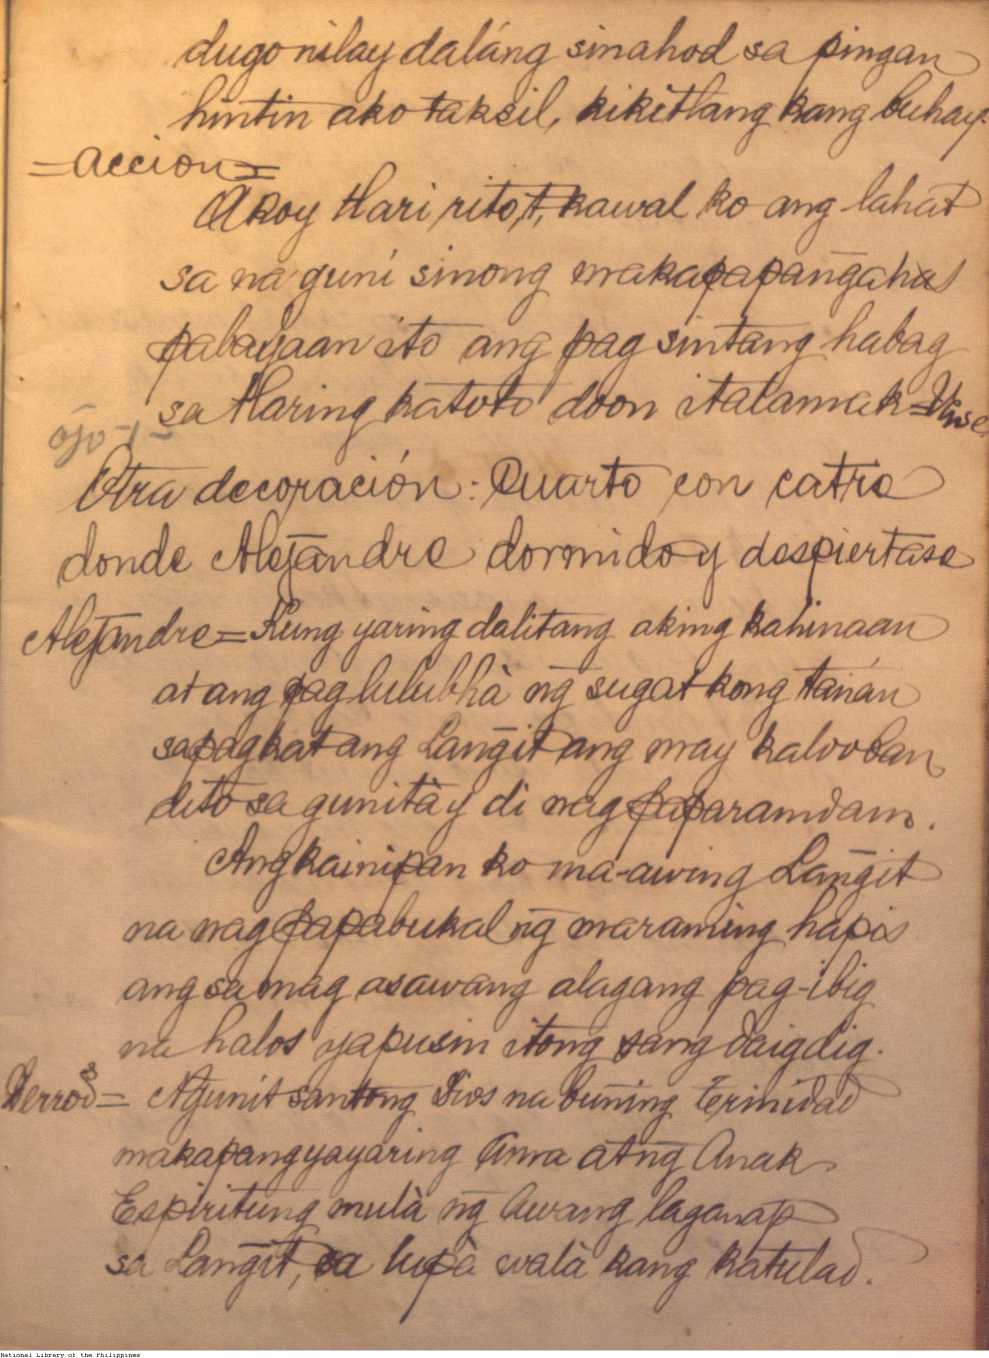 dugo nilay daláng sinahod sa pingan
hintin ako taksil, kikitlang kang buhay.
=accion=
Akoy Hari rito,t, kawal ko ang lahat
sa na guni sinong makapapang̃ahas
pabayaan ito ang pag sintang habag
sa Haring katoto doon italamak = Vanse
ojo-1-
Otra decoración: Quarto con catrie
donde Alejandre dormido y despiertase
Alejandre = Kung yaring dalitang aking kahinaan
at ang paglulubhà ng̃ sugat kong tánán
sapagkat ang Lang̃it ang may kalooban
dito sa gunitày di nag paparamdam.
Ang kainipan ko ma-awing Lang̃it
na nag papabukal ng̃ maraming hapis
ang sa mag asawang alagang pag-ibig
na halos yapusin itong sang daigdig.
= Ng̃unit santong Dios na buning Terinidad
makapangyayaring Ama at ng̃ Anak
Espiritung mulà ng̃ awang laganap
sa Lang̃it, sa lupà walà kang katulad.
National Library of the Philippines